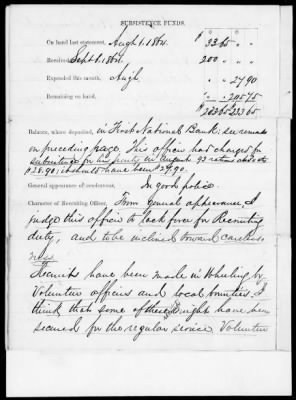 SUBSISTENCE FUNDS.
On hand last statement, Augh 1. 1864. $ 33 65 " "
Received Sept 1. 1864. 200 " " "
Expended this month, Augh " " 27 90
Remaining on hand. " " 205 75
$ 233 65 233 65
Balance, where deposited, in First National Bank. see remark
on preceding page. This officer had charged for
subsistence for his party in August 93 rations
$28.90; it should have been $27.90.
General appearance of rendezvous, In good police.
Character of Recruiting Officer, From general appearance I
judge this officer to lack force for Recruiting
duty, and to be inclined toward careless-
ness.
Recruits have been made in Wheeling by
Volunteer officers and local bounties. I
think that some of these might have been
secured for the regular service. Volunteer